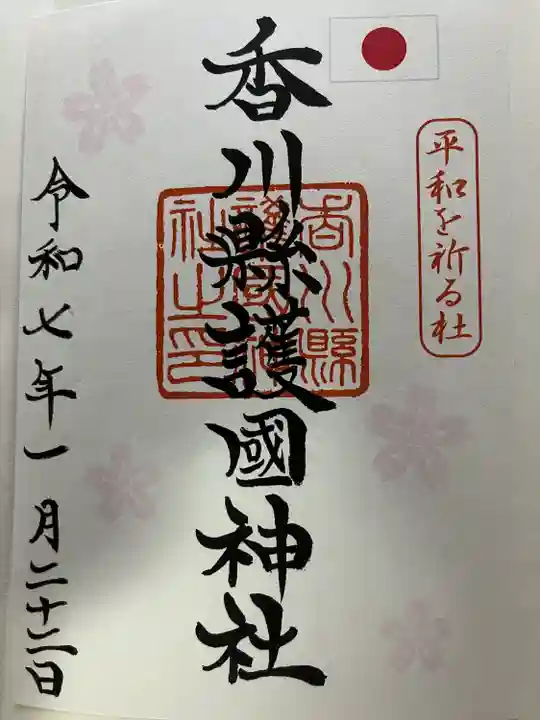 平和を祈る社
香川縣護國神社
香川縣
護國神
社之印
令和七年一月二十二日